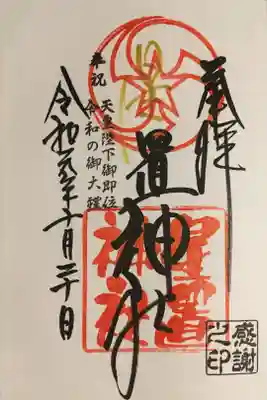 奉拝
星置神社
星置神社
奉祝
天皇陛下御即位
令和の御大禮
令和元年十月二十日
感謝之印